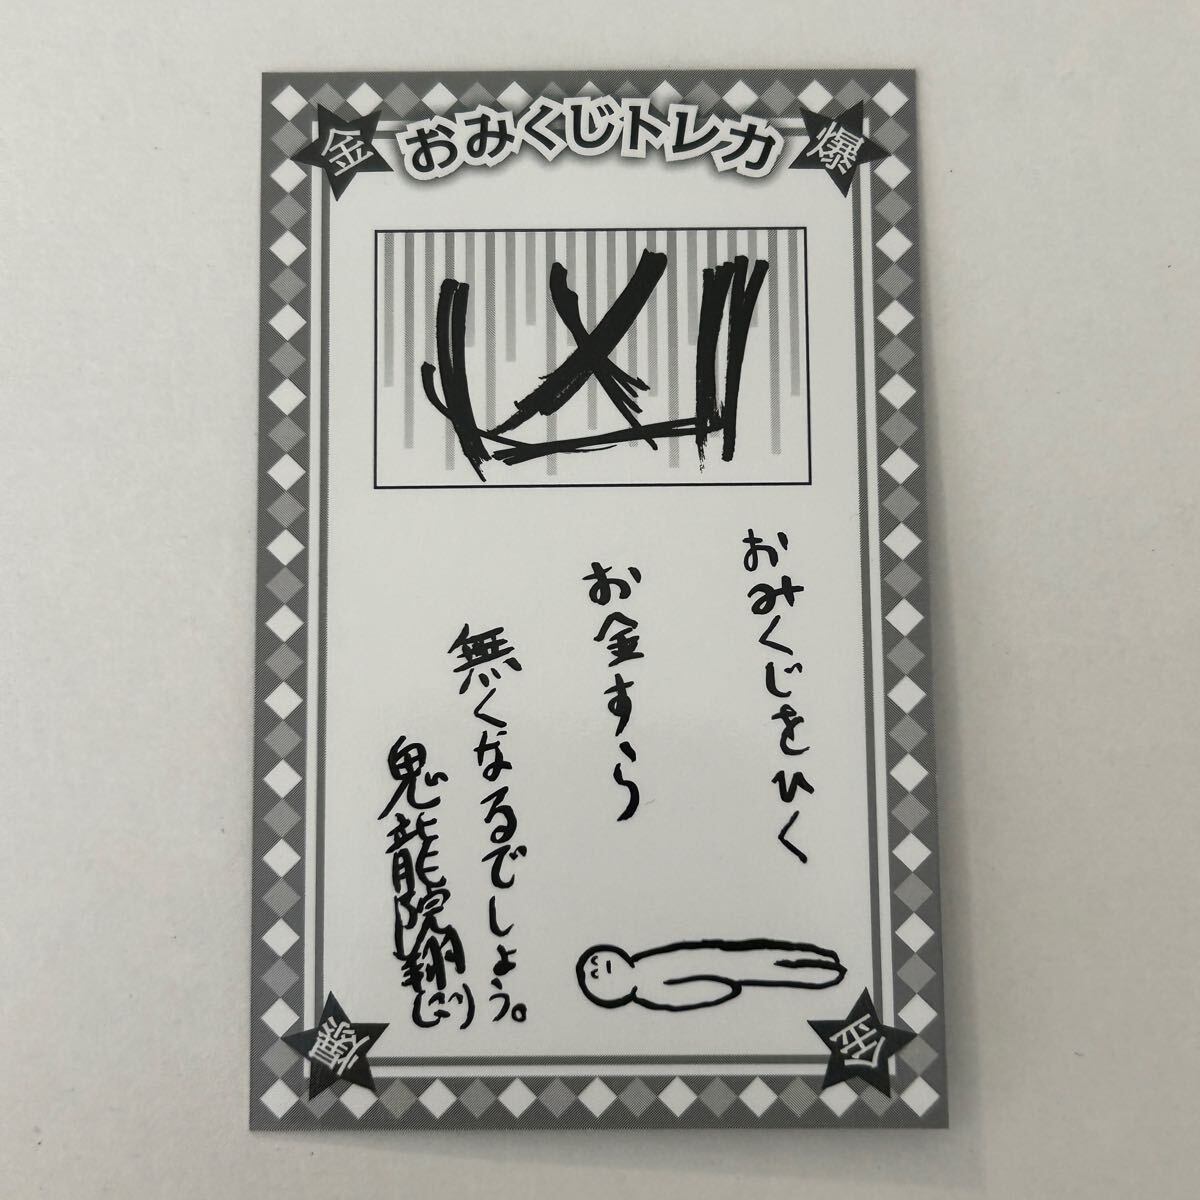 金
おみくじトレカ
爆
凶
おみくじをひく
お金すら
無くなるでしょう。
鬼龍院翔
爆
金